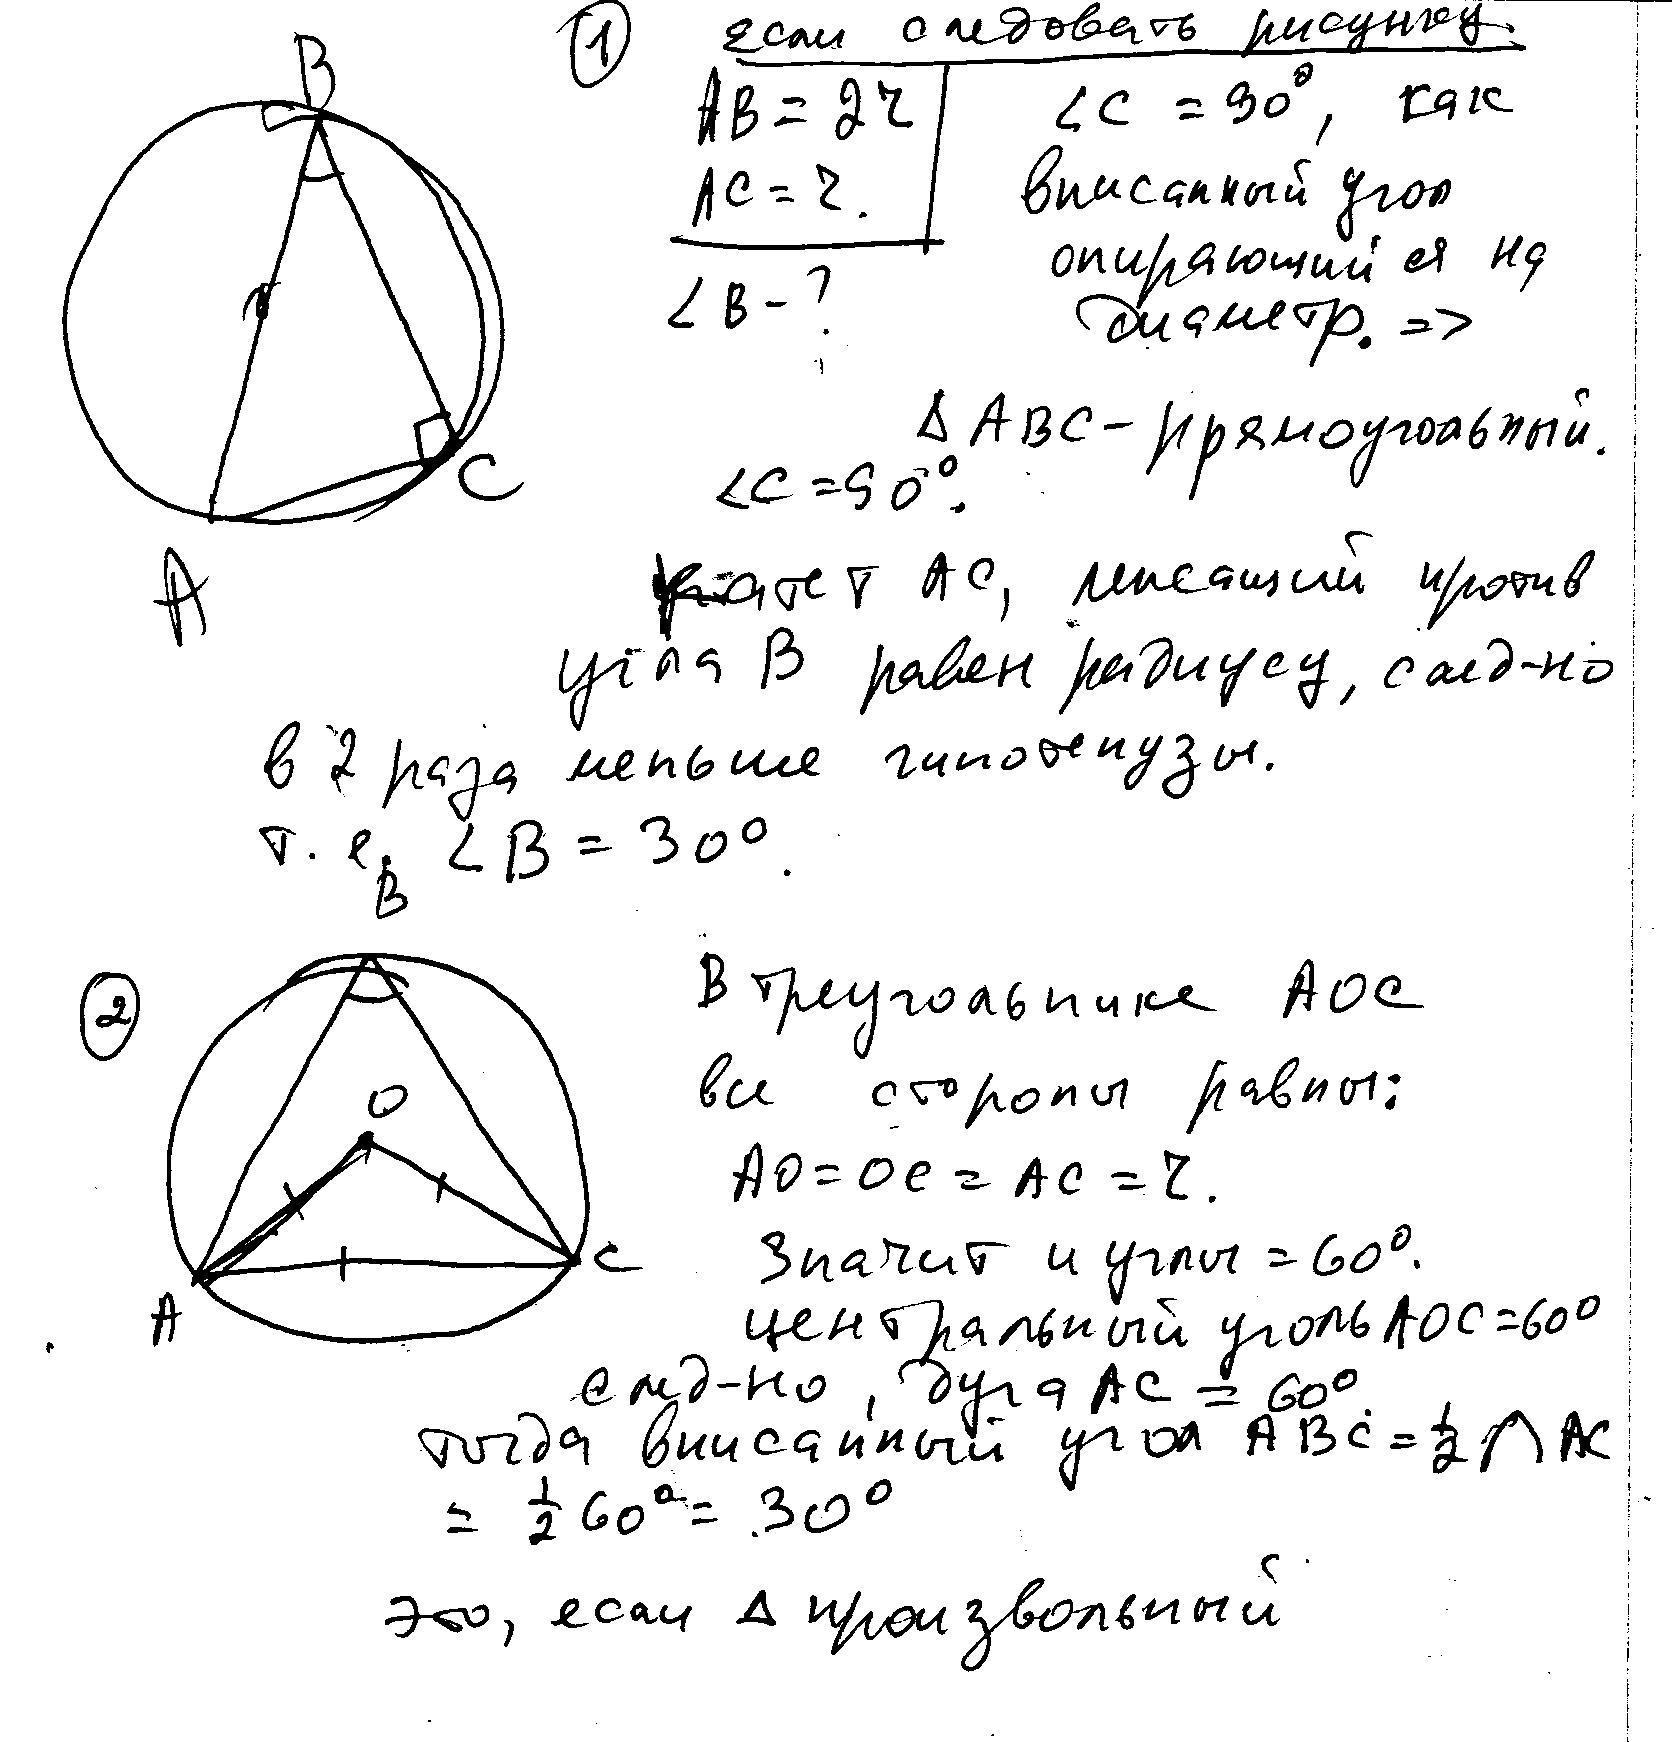 B
C
A
① если следовать рисунку.
AB = 2r
AC = r.
∠B - ?
∠C = 90°, как
вписанный угол
опирающийся на
диаметр. =>
Δ ABC - прямоугольный.
∠C = 90°.
катет AC, лежащий против
угла B равен радиусу, след-но
в 2 раза меньше гипотенузы.
т. е. ∠B = 30°.
②
B
O
A
C
В треугольнике AOC
все стороны равны:
AO = OC = AC = r.
Значит и углы = 60°.
центральный уголь AOC = 60°
след-но, дуга AC = 60°.
тогда вписанный угол ABC = 1/2 ∩ AC
= 1/2 60° = 30°
это, если Δ произвольный